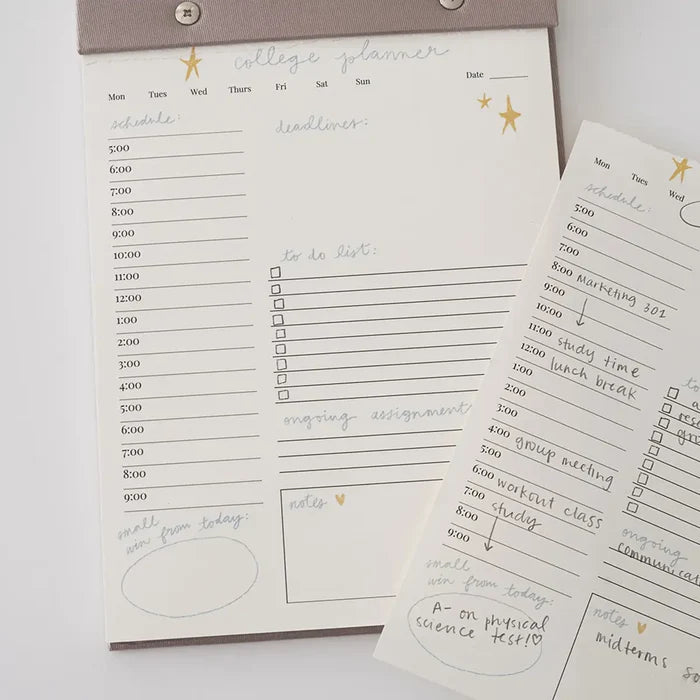 college planner
Mon Tues Wed Thurs Fri Sat Sun Date
schedule:
5:00
6:00
7:00
8:00
9:00
10:00
11:00
12:00
1:00
2:00
3:00
4:00
5:00
6:00
7:00
8:00
9:00
small
win from today:
deadlines:
to do list:
ongoing assignment
notes
Mon Tues Wed
schedule:
5:00
6:00
7:00
8:00 Marketing 301
9:00
10:00
11:00 study time
12:00 lunch break
1:00
2:00
3:00
4:00 group meeting
5:00
6:00 workout class
7:00 study
8:00
9:00
small
win from today:
A- on physical
science test!
to
ongoing
notes
midterms